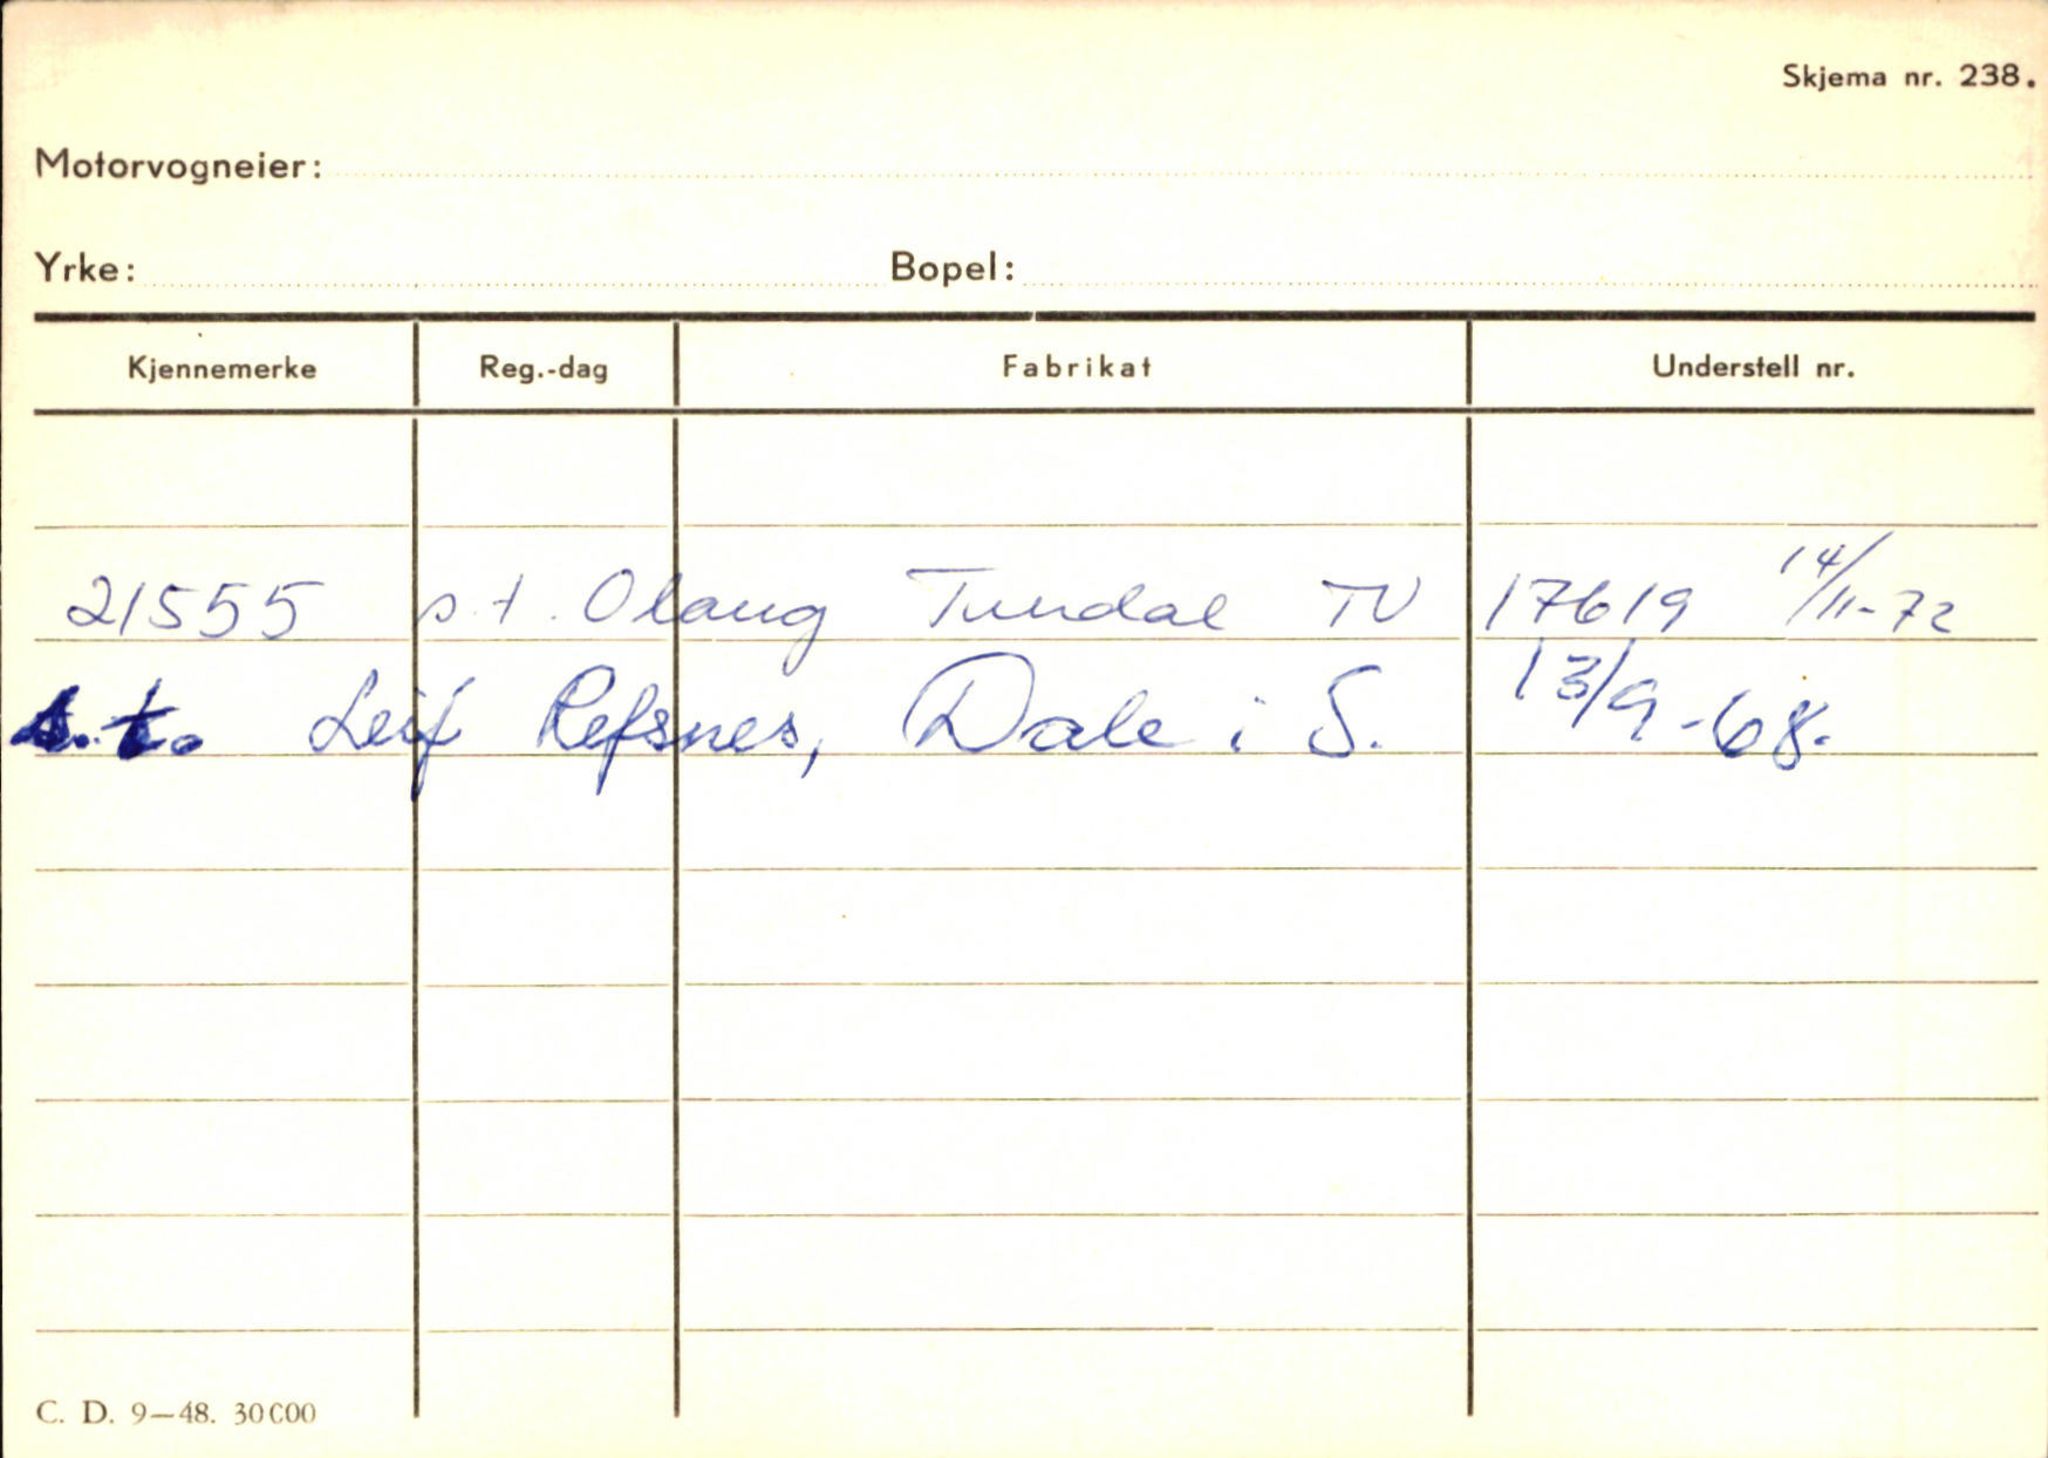 Skjema nr. 238.
Motorvogneier:
Yrke: Bopel:
Kjennemerke Reg.-dag Fabrikat Understell nr.
21555 s.t. Olaug Tundal TV 17619 14/11-72
s.t. Leif Refsnes, Dale i S. 13/9-68.
C. D. 9—48. 30000